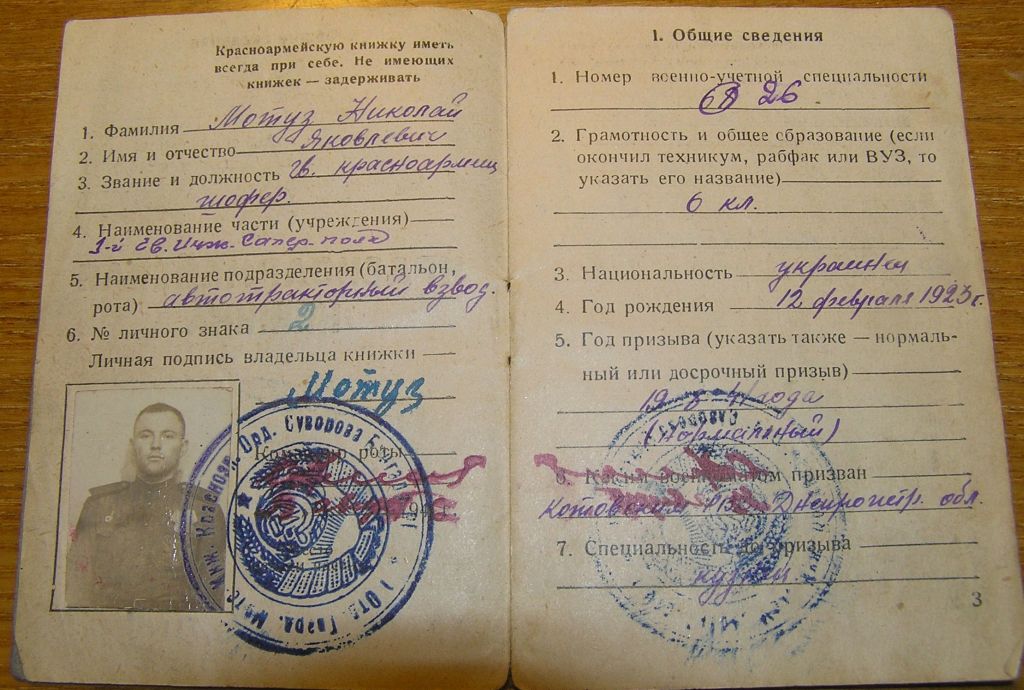 Красноармейскую книжку иметь
всегда при себе. Не имеющих
книжек — задерживать
1. Фамилия Мотуз Николай
2. Имя и отчество Яковлевич
3. Звание и должность гв. красноармеец
шофер.
4. Наименование части (учреждения)
1-й гв. Инж. Сапер. полк
5. Наименование подразделения (батальон,
рота) автотракторный взвод.
6. № личного знака 2
Личная подпись владельца книжки
Мотуз
Орд. Суворова
Командир роты
1 Отд. Гвард. Мото Инж.
1. Общие сведения
1. Номер военно-учетной специальности
26
2. Грамотность и общее образование (если
окончил техникум, рабфак или ВУЗ, то
указать его название)
6 кл.
3. Национальность украинец
4. Год рождения 12 февраля 1923 г.
5. Год призыва (указать также — нормаль-
ный или досрочный призыв)
года
(нормальный)
6. Каким военкоматом призван
Котовским РВК Днепропетр. обл.
7. Специальность до призыва
3